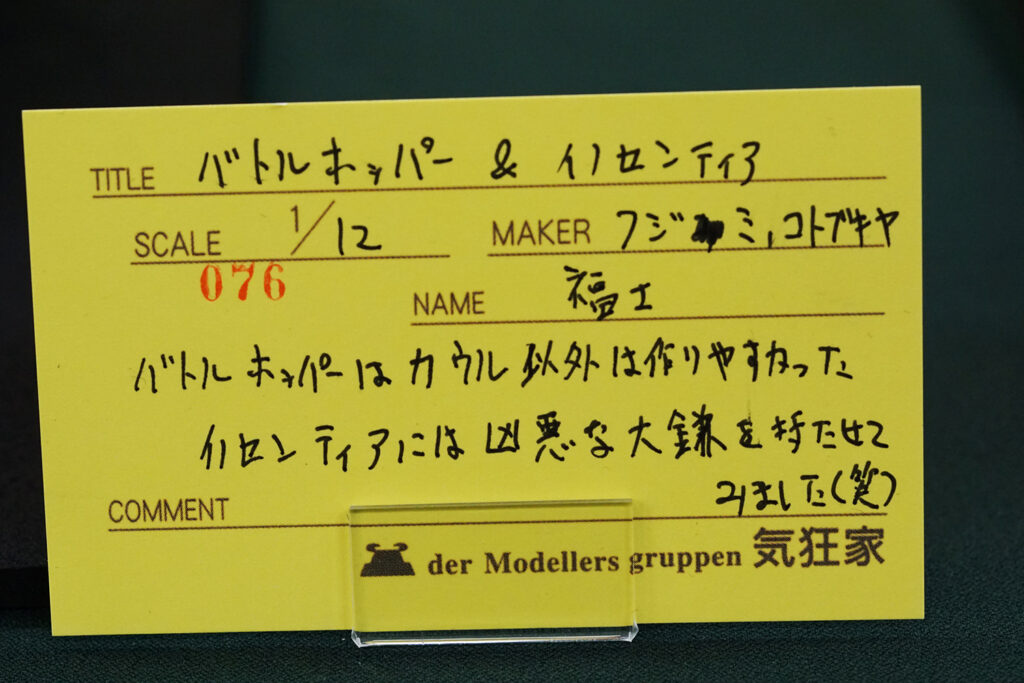 TITLE バトルホッパー & イノセンティア
SCALE 1/12 MAKER フジミ,コトブキヤ
076
NAME 福士
バトルホッパーはカウル以外は作りやすかった
イノセンティアには凶悪な大鎌を持たせて
みました(笑)
COMMENT
der Modellers gruppen 気狂家